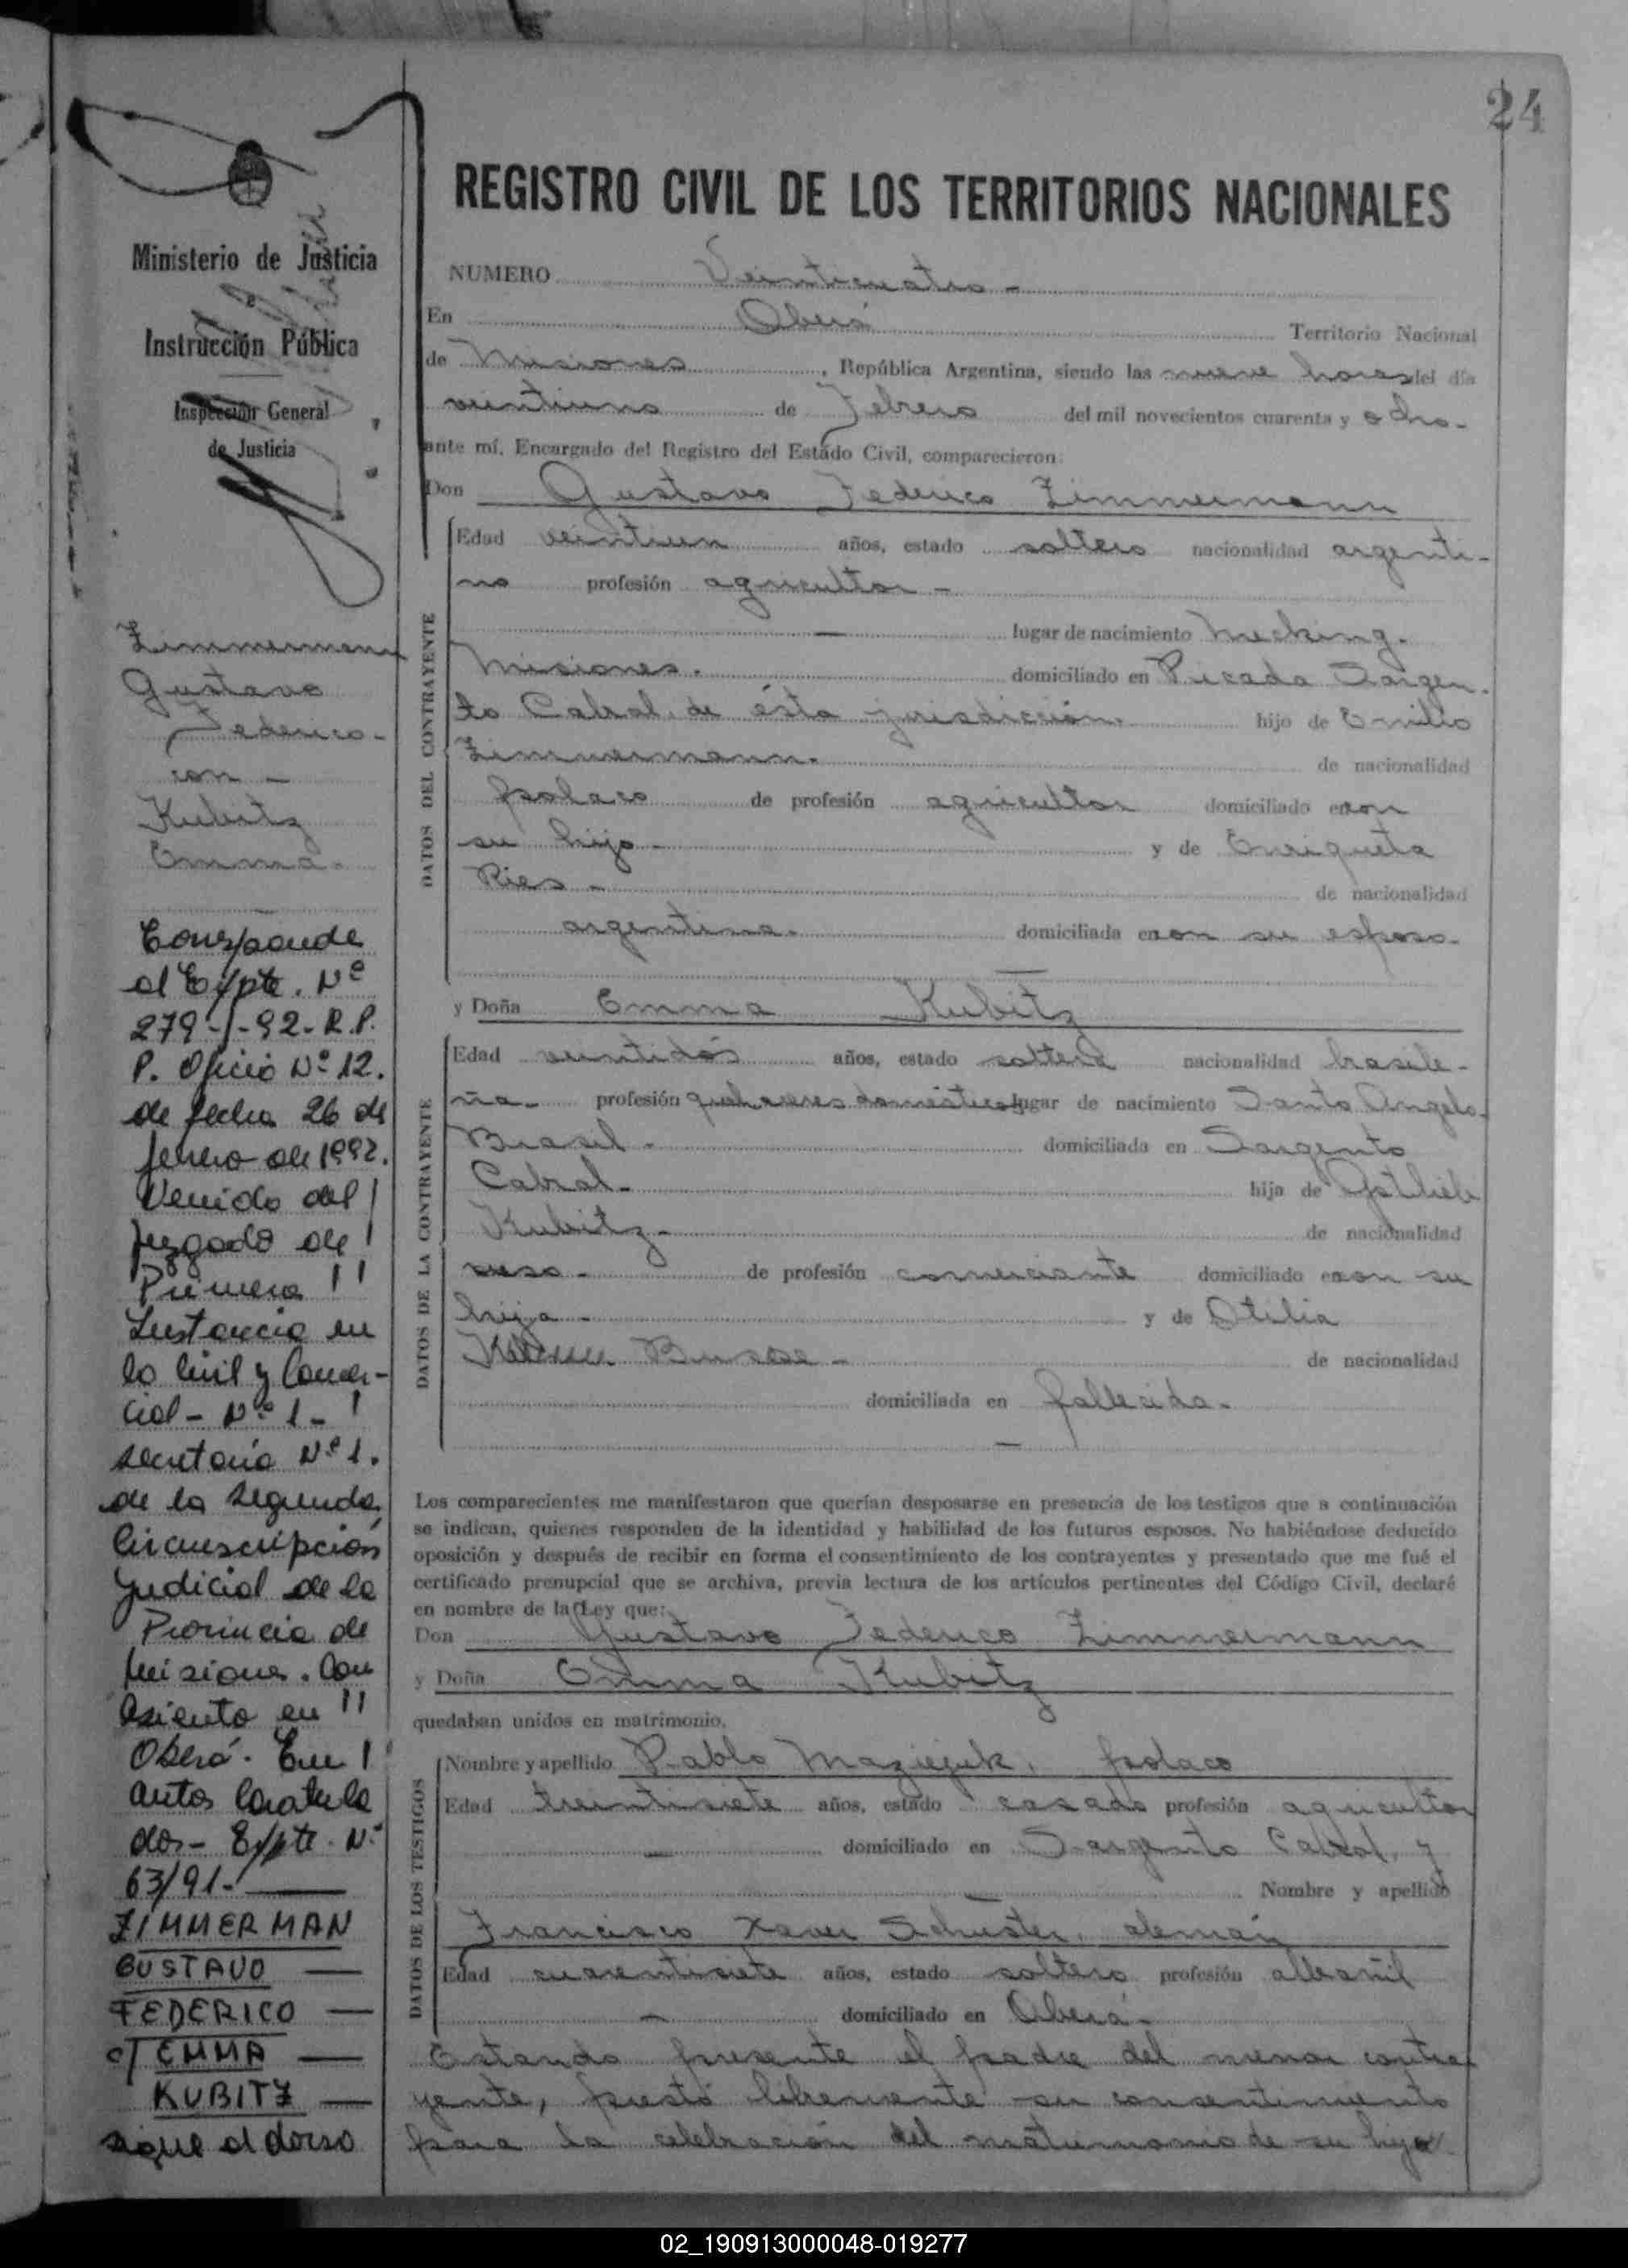 24
Ministerio de Justicia
e
Instrucción Pública
Inspección General
de Justicia
Zimmermann
Gustavo
Federico -
con -
Kubitz
Emma -
Corresponde
al Expte. Nº
279-J-92-R.P.
P. Oficio Nº 12.
de fecha 26 de
febrero de 1992.
Venido del
Juzgado de
Primera
Instancia en
lo Civil y Comer-
cial - Nº 1 -
secretaría Nº 1.
de la Segunda
Circunscripción
Judicial de la
Provincia de
Misiones. Con
asiento en
Oberá. En
autos Caratula
dos - Expte. Nº
63/91-
ZIMMERMAN
GUSTAVO
FEDERICO
c/ EMMA
KUBITZ
sigue al dorso
REGISTRO CIVIL DE LOS TERRITORIOS NACIONALES
NUMERO Veinticuatro -
En Oberá Territorio Nacional
de Misiones, República Argentina, siendo las nueve horas del día
veintiuno de Febrero del mil novecientos cuarenta y ocho -
ante mí, Encargado del Registro del Estado Civil, comparecieron:
Don Gustavo Federico Zimmermann
DATOS DEL CONTRAYENTE
Edad veintiun años, estado soltero nacionalidad argenti-
no profesión agricultor -
lugar de nacimiento Mecking.
Misiones. domiciliado en Picada Sargen-
to Cabral de ésta jurisdicción. hijo de Emilio
Zimmermann. de nacionalidad
polaco de profesión agricultor domiciliado en con
su hijo - y de Enriqueta
Ries - de nacionalidad
argentina. domiciliada en con su esposo.
y Doña Emma Kubitz
DATOS DE LA CONTRAYENTE
Edad veintidós años, estado soltera nacionalidad brasile-
ña - profesión quehaceres domésticos lugar de nacimiento Santo Angelo.
Brasil - domiciliada en Sargento
Cabral - hija de Gotlieb
Kubitz - de nacionalidad
ruso - de profesión comerciante domiciliado en con su
hija - y de Otilia
Busse - de nacionalidad
domiciliada en fallecida -
Los comparecientes me manifestaron que querían desposarse en presencia de los testigos que a continuación
se indican, quienes responden de la identidad y habilidad de los futuros esposos. No habiéndose deducido
oposición y después de recibir en forma el consentimiento de los contrayentes y presentado que me fué el
certificado prenupcial que se archiva, previa lectura de los artículos pertinentes del Código Civil, declaré
en nombre de la Ley que:
Don Gustavo Federico Zimmermann
y Doña Emma Kubitz
quedaban unidos en matrimonio.
DATOS DE LOS TESTIGOS
Nombre y apellido Pablo Maziejuk, polaco
Edad treintisiete años, estado casado profesión agricultor
domiciliado en Sargento Cabral, y
Nombre y apellido
Francisco Xaver Schuster, alemán
Edad cuarentisiete años, estado soltero profesión albañil
domiciliado en Oberá -
Estando presente el padre del menor contra-
yente, prestó libremente su consentimiento
para la celebración del matrimonio de su hijo
02_190913000048-019277